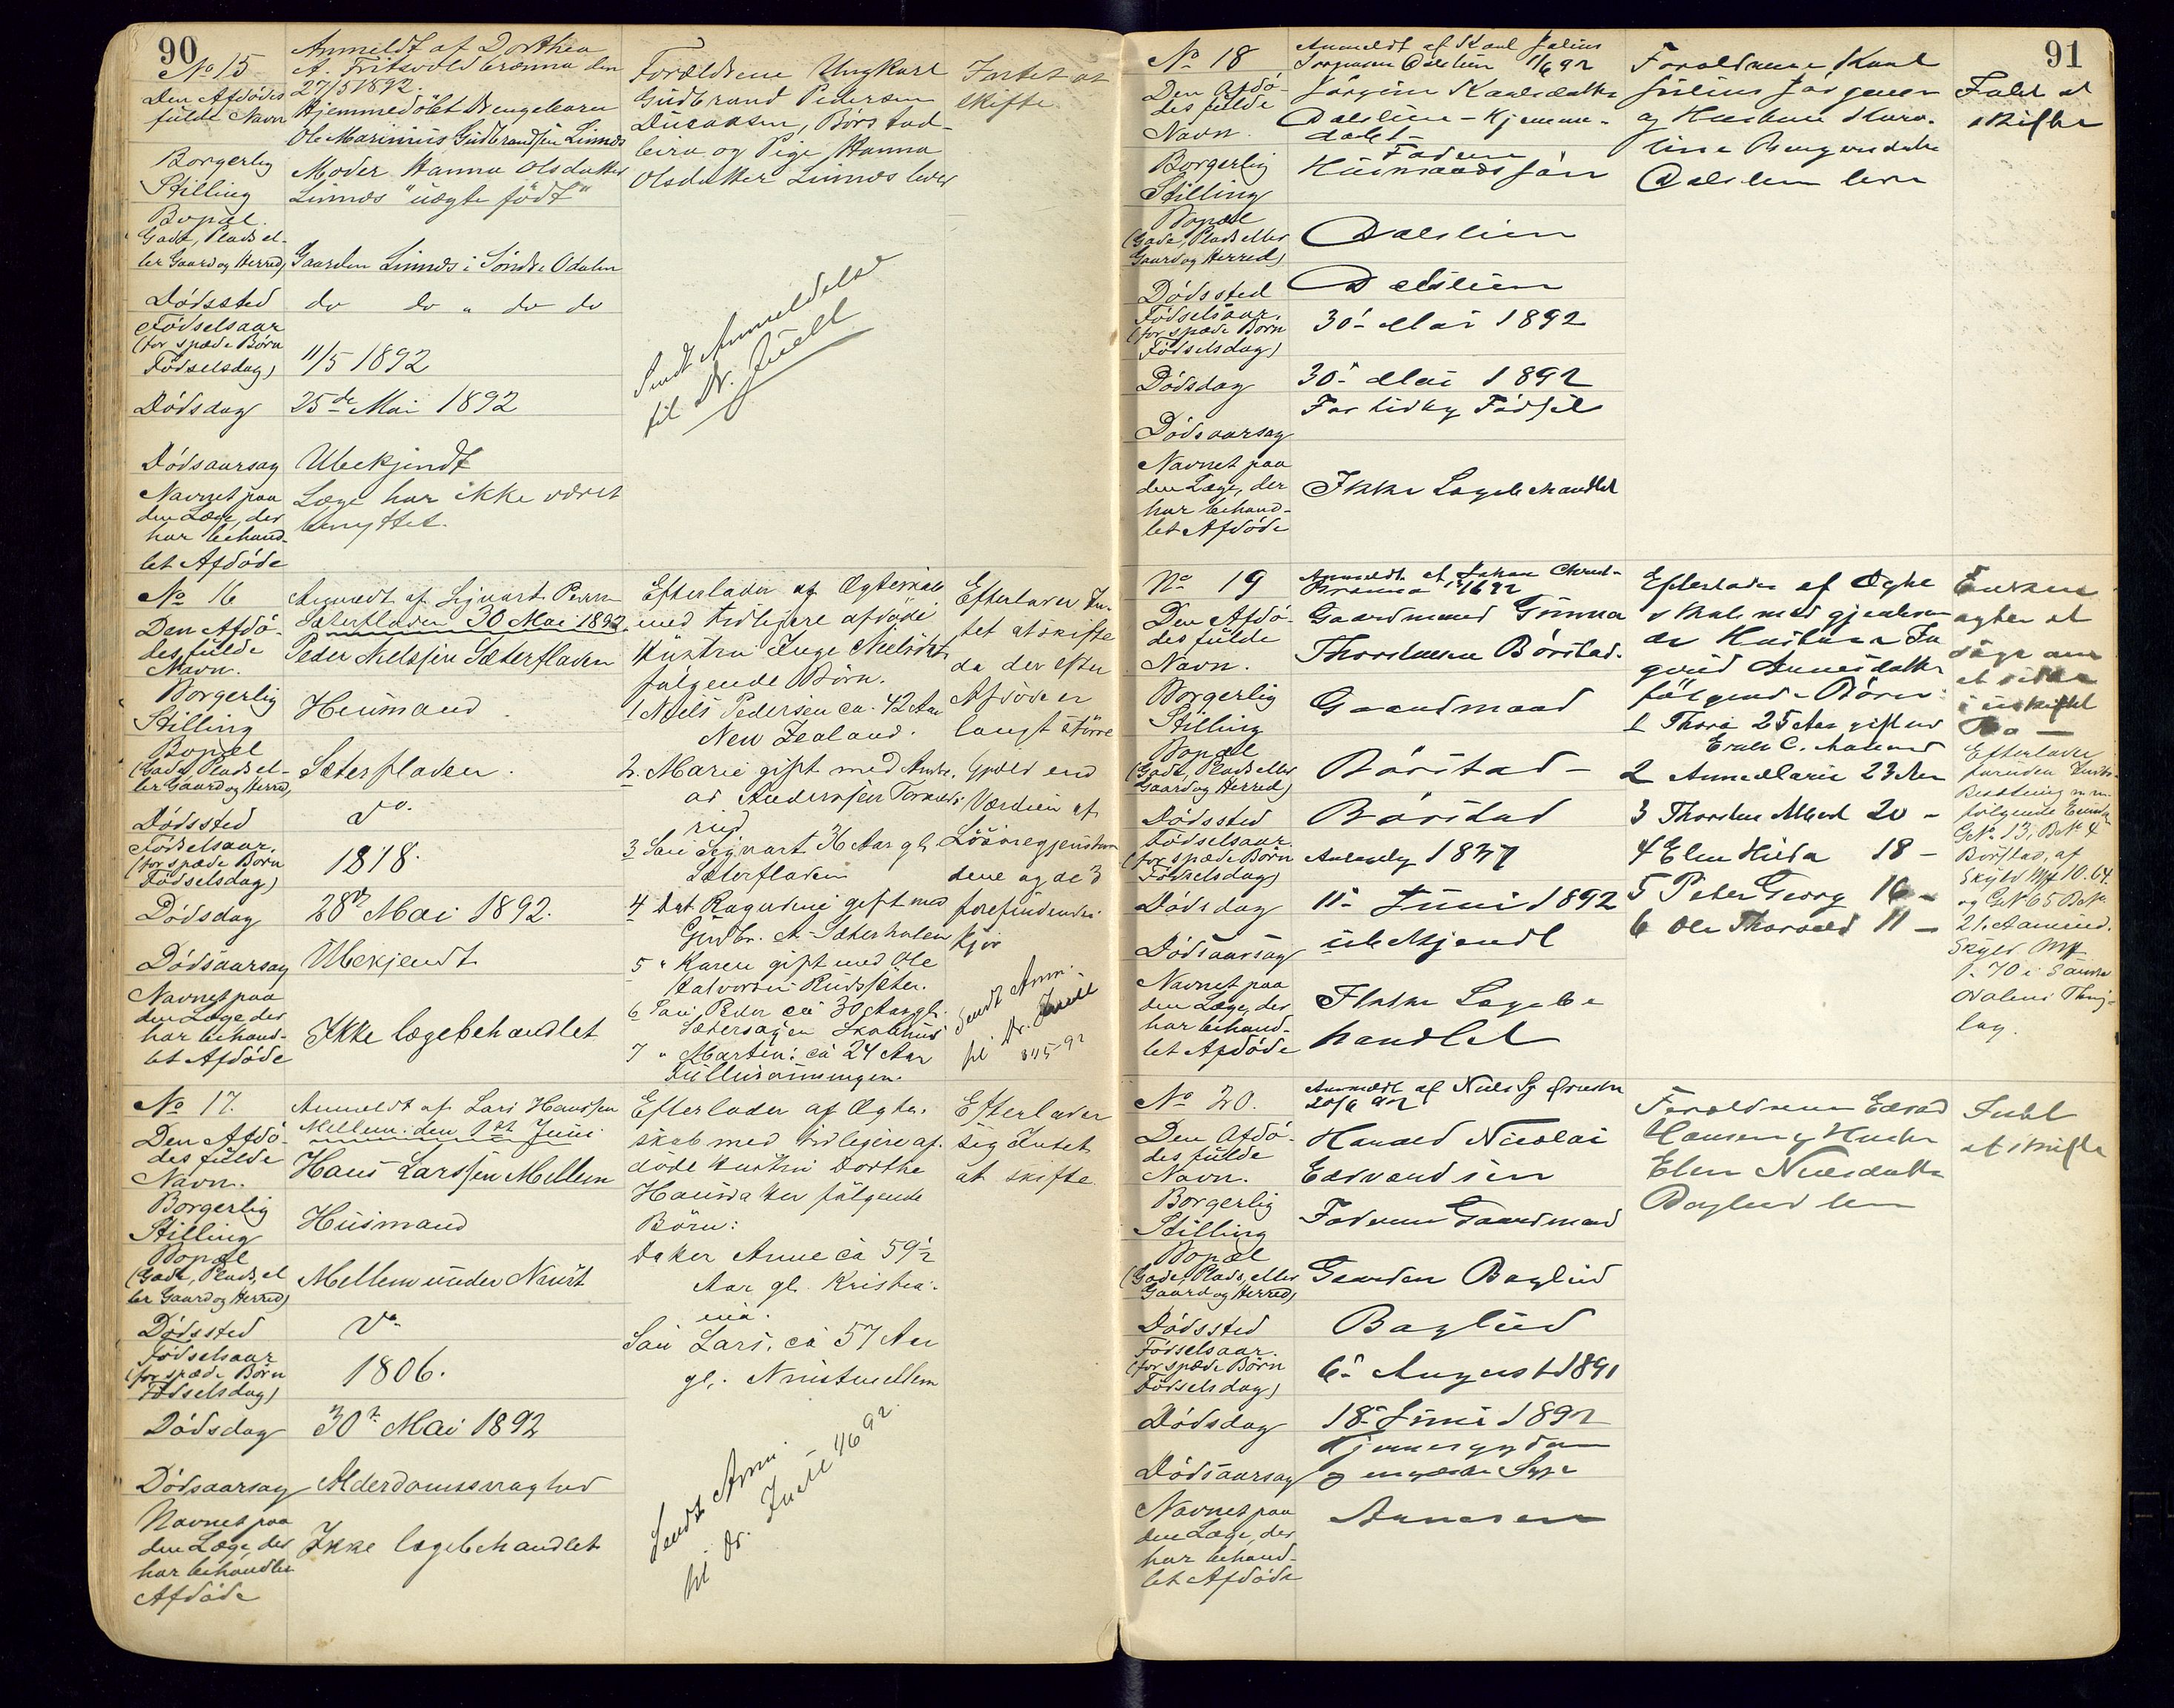 90
No 15
Anmeldt af Dorthea
A. Fritsvold brænna den
27/5 1892.
Den Afdødes
fulde Navn
Hjemmedøbt Drengebarn
Ole Marinius Gudbrandsen Linnes
Borgerlig
Stilling
Moder Hanna Olsdatter
Linnes "uægte født"
Bopæl
Gade, Plads el-
ler Gaard og Herred)
Gaarden Linnes i Søndre Odalen
Dødssted
do do " do do
Fødselsaar
(for spæde Børn
Fødselsdag)
11/5 1892
Dødsdag
25de Mai 1892
Dødsaarsag
Ubekjendt
Navnet paa
den Læge, der
har behand-
let Afdøde
Læge har ikke været
benyttet.
Forældrene Ungkarl
Gudbrand Pedersen
Børstad-
og Pige Hanna
Olsdatter Linnes lever
Intet at
skifte.
Sendt Anmeldelse
til Dr. Juell
No 16
Anmeldt af Sigvart Peders.
Sæterfladen 30 Mai 1892.
Den Afdø-
des fulde
Navn.
Peder Nielssen Sæterfladen
Borgerlig
Stilling
Husmand
Bopæl
(Gade, Plads el-
ler Gaard og Herred)
Sæterfladen.
Dødssted
do.
Fødselsaar.
(for spæde Børn
Fødselsdag)
1818.
Dødsdag
28de Mai 1892.
Dødsaarsag
Ubekjendt
Navnet paa
den Læge der
har behand-
let Afdøde
Ikke lægebehandlet
Efterlader af Ægteskab
med tidligere afdøde
Hustru Inge Nielsdt.
følgende Børn.
1 Niels Pedersen ca. 42 Aar
New Zealand.
2. Marie gift med Andre-
as Andersen
rud
3 Søn Sigvart 36 Aar gl.
Sæterfladen
4 Dat. Ragndine gift med
Gudbr. A. Sæterholen
5 " Karen gift med Ole
Halvorsen Rudsæter.
6 Søn Peder ca 30 Aar gl.
7 " Martin: ca 24 Aar
Efterlader In-
tet at skifte
da der efter
Afdøde er
langt større
Gjæld end
Værdien af
Løsøregjenstan-
dene og de 3
forefindende
Kjør
Sendt Anm.
til Dr. Juell
31/5-92
No 17.
Anmeldt af Lars Hanssen
Mellem. den 1ste Juni
Den Afdø-
des fulde
Navn.
Hans Larssen Mellem
Borgerlig
Stilling
Husmand
Bopæl
(Gade, Plads, el
ler Gaard og Herred)
Mellem under Nust
Dødssted
do
Fødselsaar
(for spæde Børn
Fødselsdag)
1806.
Dødsdag
30te Mai 1892
Dødsaarsag
Alderdomssvaghed
Navnet paa
den Læge, der
har behandlet
Afdøde
Ikke lægebehandlet
Efterlader af Ægte-
skab med tidligere af-
døde Hustru Dorthe
Hansdatter følgende
Børn:
Datter Anne ca 59½
Aar gl. Kristia-
nia.
Søn Lars, ca 57 Aar
gl.. Nustmellem
Efterlader
sig Intet
at skifte
Sendt Anm.
til Dr. Juell 1/6 92.
91
No 18
Anmeldt af Karl Julius
Jørgensen Dalslien 1/6 92
Den Afdø-
des fulde
Navn.
Jørgine Karlsdatter
Dalslien - Hjemme-
døbt
Borgerlig
Stilling
Faderen
Husmandssøn
Bopæl
(Gade, Plads eller
Gaard og Herred)
Dalslien
Dødssted
Dalslien
Fødselsaar.
(for spæde Børn
Fødselsdag)
30' Mai 1892
Dødsdag
30' Mai 1892
Dødsaarsag
For tidlig Fødsel
Navnet paa
den Læge, der
har behand-
let Afdøde
Ikke Lægebehandlet
Forældrene Karl
Julius Jørgensen
og Hustru Karo-
line
Dalslien lever
Intet at
skifte
No 19
Anmeldt af Johan Christ-
Den Afdø-
des fulde
Navn.
Gaardmand Gunnar
Thorstensen Børstad.
Borgerlig
Stilling
Gaardmand
Bopæl
(Gade, Plads eller
Gaard og Herred)
Børstad -
Dødssted
Børstad
Fødselsaar.
(for spæde Børn
Fødselsdag)
1837
Dødsdag
11' Juni 1892
Dødsaarsag
ubekjendt
Navnet paa
den Læge, der
har behand-
let Afdøde
Ikke Lægebe
handlet
Efterlader af Ægte
skab med gjenleven
de Hustru In
geborg
følgende Børn:
1 Thora 25 Aar gift med
Erik C.
2 Anne Marie 23 Aar
3 Thorsten Albert 20 -
4 Elen Hilda 18 -
5 Peter Georg 16 -
6 Ole Thorvald 11 -
Enken
agter at
søge om
at sidde
i uskiftet
Bo -
Efterlader
foruden Indbo
følgende Eiendom
GNo. 13, BNo 4
Børstad, af
Skyld Mrk 10.04
og GNo 65 BNo
21. Aamund.
Skyld Mrk
i Søndre
Odalens Thing-
lag.
No 20.
Anmeldt af
20/6 92
Den Afdø-
des fulde
Navn.
Harald Nicolai
Edvardsen
Borgerlig
Stilling
Faderen Gaardmand
Bopæl
(Gade, Plads, eller
Gaard og Herred)
Gaarden Baglud
Dødssted
Baglud
Fødselsaar.
(for spæde Børn
Fødselsdag)
6' August 1891
Dødsdag
18' Juni 1892
Dødsaarsag
og engelske Syge
Navnet paa
den Læge, der
har behand-
let Afdøde
Forældrene Edvard
Hansen og Hustru
Elen Nilsdatter
Baglud lever
Intet
at skifte